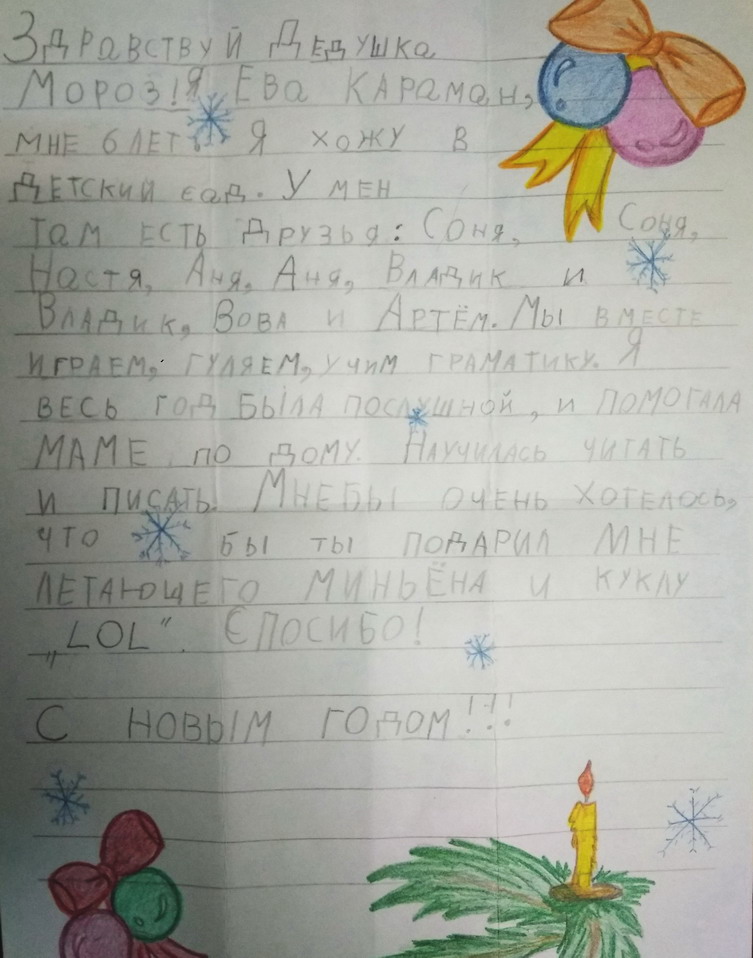 Здравствуй Дедушка
Мороз! Я Ева Караман,
мне 6 лет. Я хожу в
детский сад. У мен
там есть друзья: Соня, Соня,
Настя, Аня, Аня, Владик и
Владик, Вова и Артём. Мы вместе
играем, гуляем, учим граматику. Я
весь год была послушной, и помогала
маме по дому. Научилась читать
и писать. Мнебы очень хотелось,
что бы ты подарил мне
летающего миньёна и куклу
„LOL“. Спосибо!
С новым годом!!!